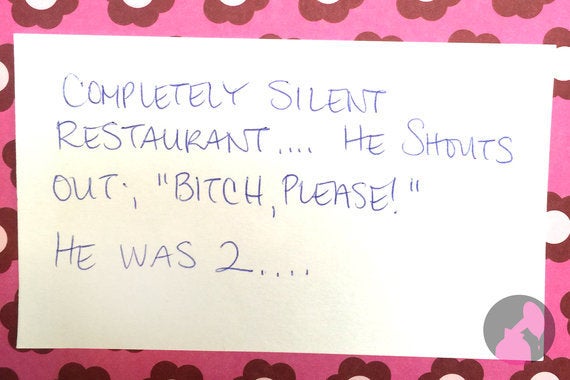 COMPLETELY SILENT
RESTAURANT.... HE SHOUTS
OUT;, "BITCH, PLEASE!"
HE WAS 2....